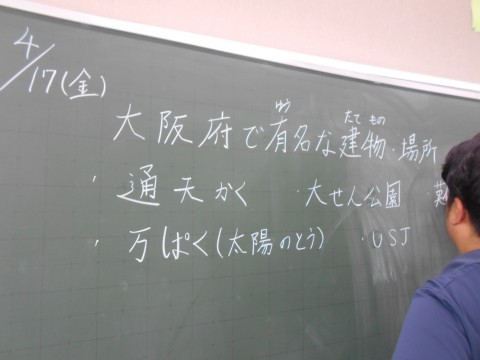 4/17(金)
大阪府で有名な建物・場所
ゆう たてもの
・通天かく ・大せん公園
・万ぱく(太陽のとう) ・USJ